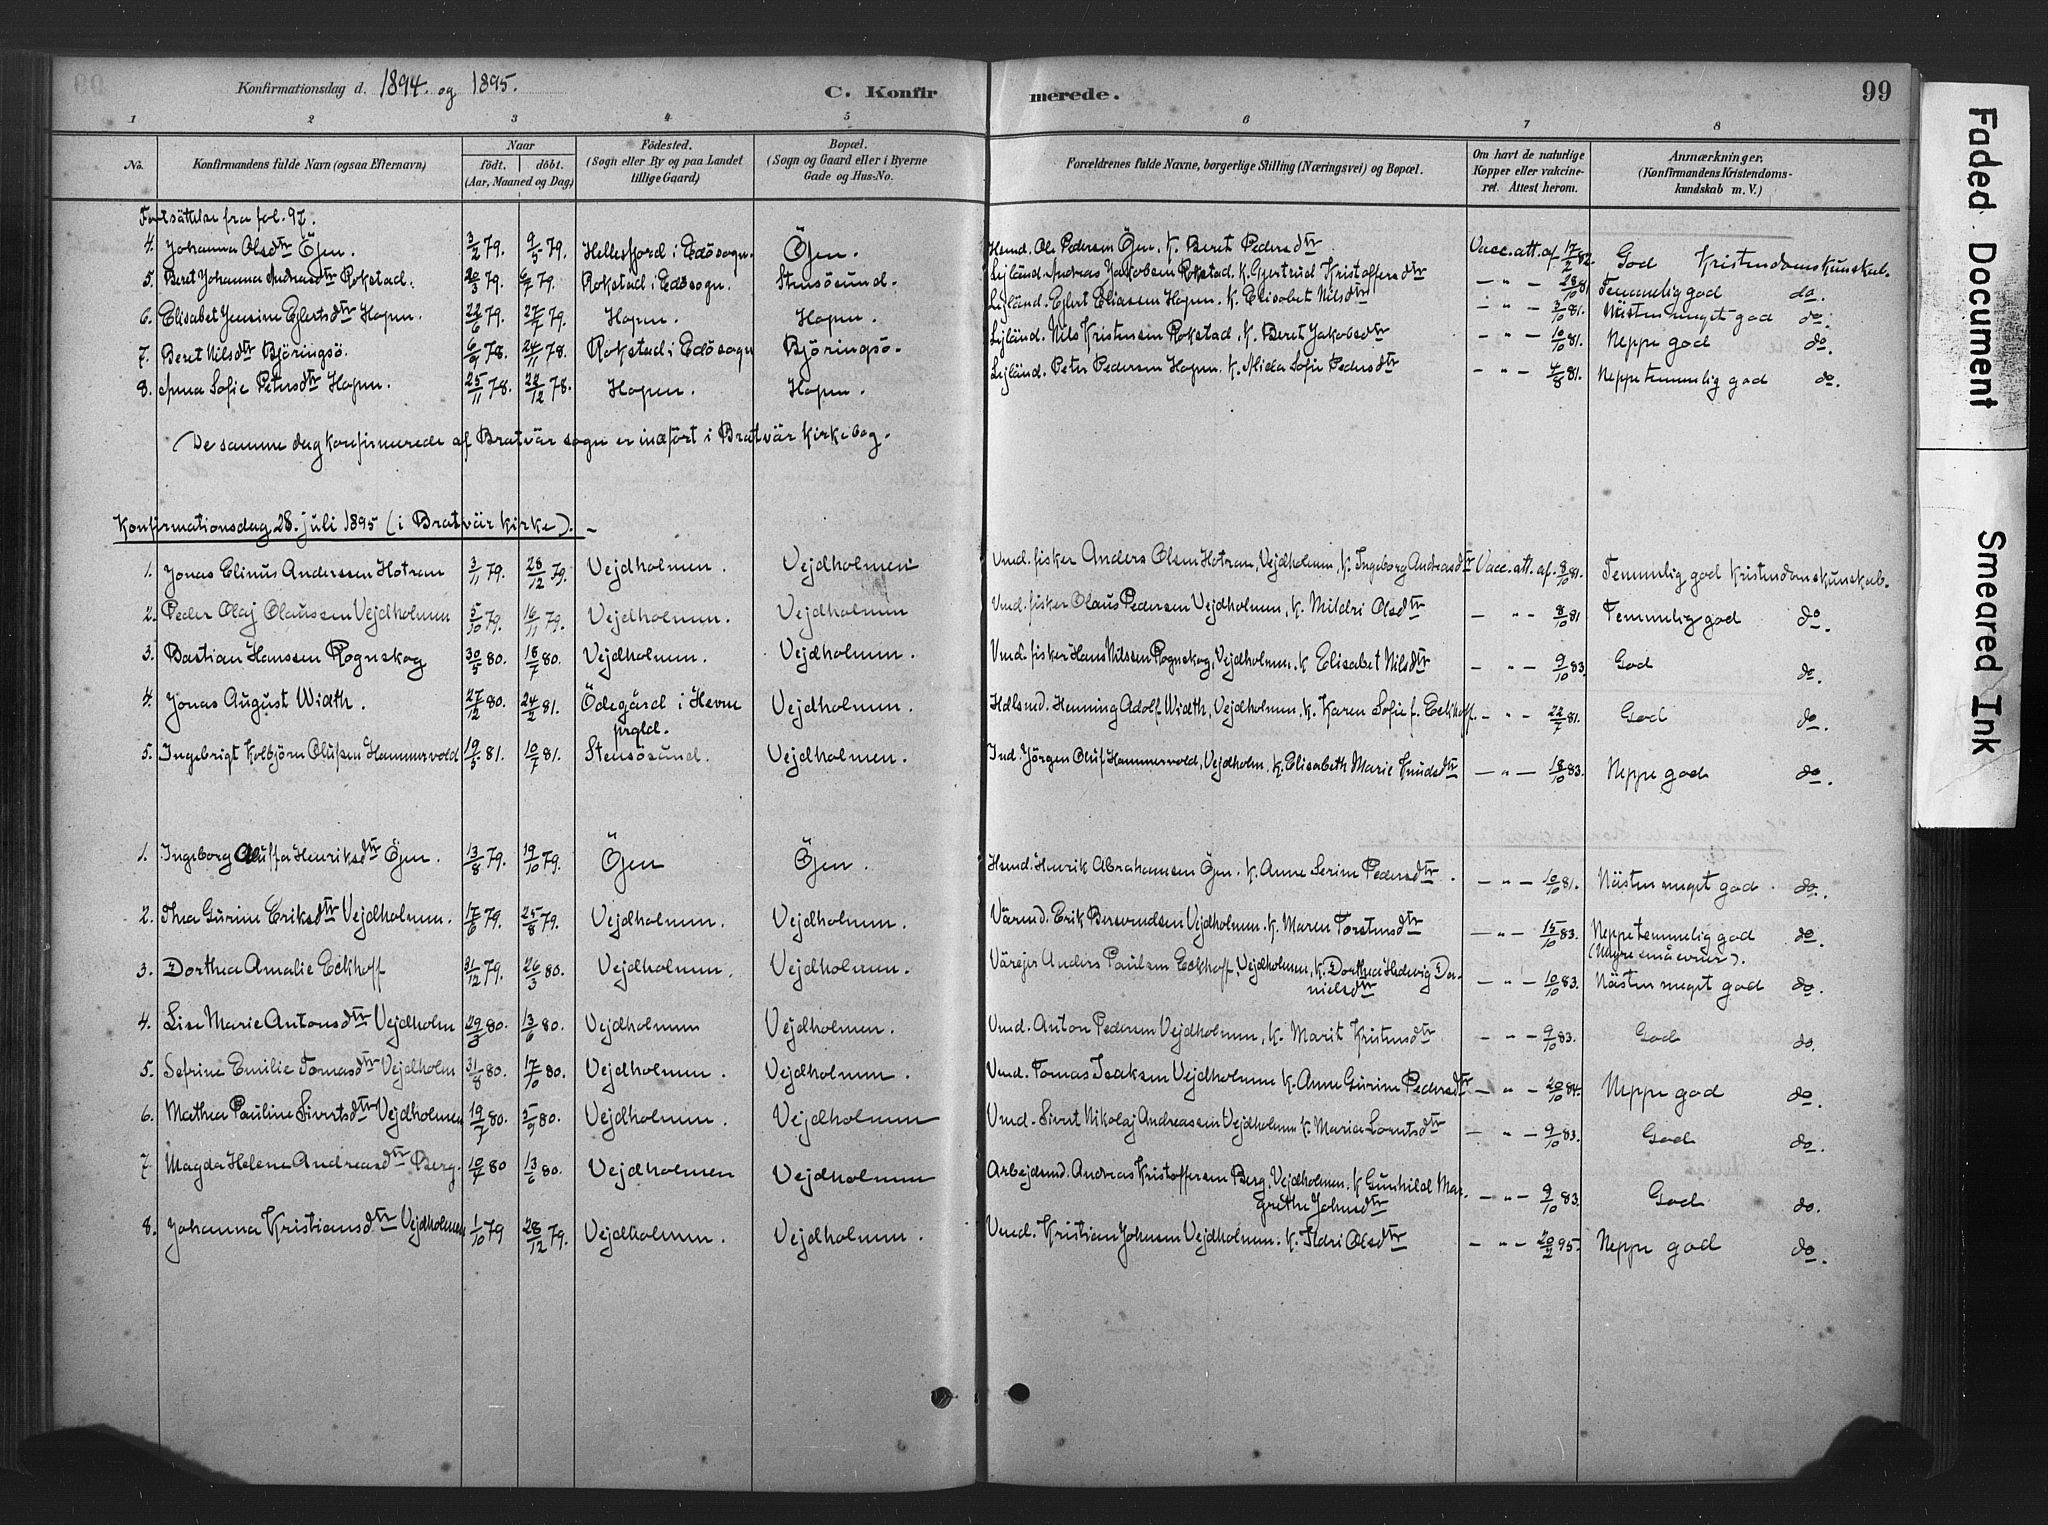 Konfirmationsdag d. 1894. og 1895.
C. Konfirmerede.
99
1 2 3 4 5 6 7 8
No. Konfirmandens fulde Navn (ogsaa Efternavn) Naar Født. døbt. (Aar, Maaned og Dag) Fødested. (Sogn eller By og paa Landet tillige Gaard) Bopæl. (Sogn og Gaard eller i Byerne Gade og Hus-No. Forældrenes fulde Navne, borgerlige Stilling (Næringsvei) og Bopæl. Om havt de naturlige Kopper eller vakcineret. Attest herom. Anmærkninger. (Konfirmandens Kristendomskundskab m. V.)
Fortsättelse fra fol. 97.
4. Johanna Olsdtr Öjen. 3/2 79. 9/5 79. Hellesfjord i Edösogn. Öjen. Husmd. Ole Pedersen Öjen. K. Beret Pedersdtr Vacc. att. af 17/2 82. God Kristendomskunskab.
5. Beret Johanna Andreasdtr Rokstad. 20/3 79. 6/7 79. Rokstad i Edösogn. Stensösund. Lejländ. Andreas Jakobsen Rokstad. K. Gjertrud Kristoffersdtr — " — 28/10 81 Temmelig god do.
6. Elisabet Jensine Eglertsdtr Hopen. 22/6 79. 27/7 79. Hopen. Hopen. Lejländ. Eglert Eliassen Hopen. K. Elisabet Nilsdtr — " — 3/10 81. Nästen meget god do.
7. Beret Nilsdtr Björingsö. 6/9 78. 24/11 78. Rokstad i Edösogn Björingsö. Lejländ. Nils Kristensen Rokstad. K. Beret Jakobsdtr — " — 10/10 81. Neppe god do.
8. Anna Sofie Petersdtr Hopen. 25/11 78. 22/12 78. Hopen. Hopen. Lejländ. Peter Pedersen Hopen. K. Mida Sofie Pedersdtr — " — 4/8 81. Neppe temmelig god do.
De samme dag konfirmerede af Bratvär sogn er indfört i Bratvär kirkebog.
Konfirmationsdag 28. juli 1895 (i Bratvär kirke). —
1. Jonas Elinus Anderssen Hotran 3/11 79. 28/12 79. Vejdholmen. Vejdholmen Vmd. fisker Anders Olsen Hotran, Vejdholmen, K. Ingeborg Andreasdtr Vacc. att. af. 8/10 81. Temmelig god Kristendomskunskab.
2. Peder Olaj Olaussen Vejdholmen 5/10 79. 16/11 79. Vejdholmen. Vejdholmen Vmd. fisker Olaus Pedersen Vejdholmen, K. Mildri Olsdtr — " — 8/10 81 Temmelig god do.
3. Bastian Hanssen Rognskog 30/5 80. 18/7 80. Vejdholmen. Vejdholmen. Vmd. fisker Hans Nilssen Rognskog, Vejdholmen. K Elisabet Nilsdtr — " — 9/10 83. God do.
4. Jonas August Width. 27/12 80. 24/2 81. Ödegård i Hevne prgld. Vejdholmen. Hdlsmd. Henning Adolf Width, Vejdholmen, K. Karen Sofie f. Eckhoff. — " — 22/7 81. God do.
5. Ingebrigt Kolbjörn Olufsen Hammervold 19/3 81. 10/7 81. Stensösund. Vejdholmen. Ind. Jörgen Oluf Hammervold, Vejdholm, K. Elisabeth Marie Knudsdtr — " — 18/10 83. Neppe god do.
1. Ingeborg Oluffa Henriksdtr Öjen. 13/8 79. 19/10 79. Öjen Öjen. Husmd. Henrik Abrahamsen Öjen. K. Anne Serine Pedersdtr. — " — 10/10 81. Nästen meget god. do.
2. Thea Gurine Eriksdtr Vejdholmen. 17/6 79. 25/8 79. Vejdholmen. Vejdholmen. Värmd. Erik Bersvendsen Vejdholmen. K. Maren Torstensdtr — " — 15/10 83. Neppe temmelig god (Nögre små evner). do.
3. Dorthea Amalie Eckhoff 31/12 79. 26/3 80. Vejdholmen. Vejdholmen. Värejer Anders Paulsen Eckhoff, Vejdholmen, K. Dorthea Hedevig Danielsdtr — " — 10/10 83. Nästen meget god do.
4. Lise Marie Antonsdtr Vejdholm 29/3 80. 13/6 80. Vejdholmen Vejdholmen. Vmd. Anton Pedersen Vejdholmen, K. Marit Kristensdtr — " — 9/10 83. God do.
5. Sefrine Emilie Tomasdtr Vejdholm 31/8 80. 17/10 80. Vejdholmen. Vejdholmen. Vmd. Tomas Isaksen Vejdholmen K. Anne Gurine Pedersdtr — " — 20/10 84. Neppe god do.
6. Mathea Pauline Sivertsdtr Vejdholmen 19/7 80. 5/9 80. Vejdholmen. Vejdholmen Vmd. Sivert Nikolaj Andreassen Vejdholmen K. Maria Lorntsdtr — " — 9/10 83. God do.
7. Magda Helene Andreasdtr Berg. 10/4 80 13/6 80. Vejdholmen Vejdholmen Arbejdsmd. Andreas Kristoffersen Berg, Vejdholmen. K Gunhild Margrethe Johnsdtr — " — 9/10 83. God do.
8. Johanna Kristiansdtr Vejdholmen 1/10 79 28/12 79. Vejdholmen. Vejdholmen. Vmd. Kristian Johnsen Vejdholmen. K. Ildri Olsdtr — " — 20/2 95. Neppe god do.
Faded Document
Smeared Ink